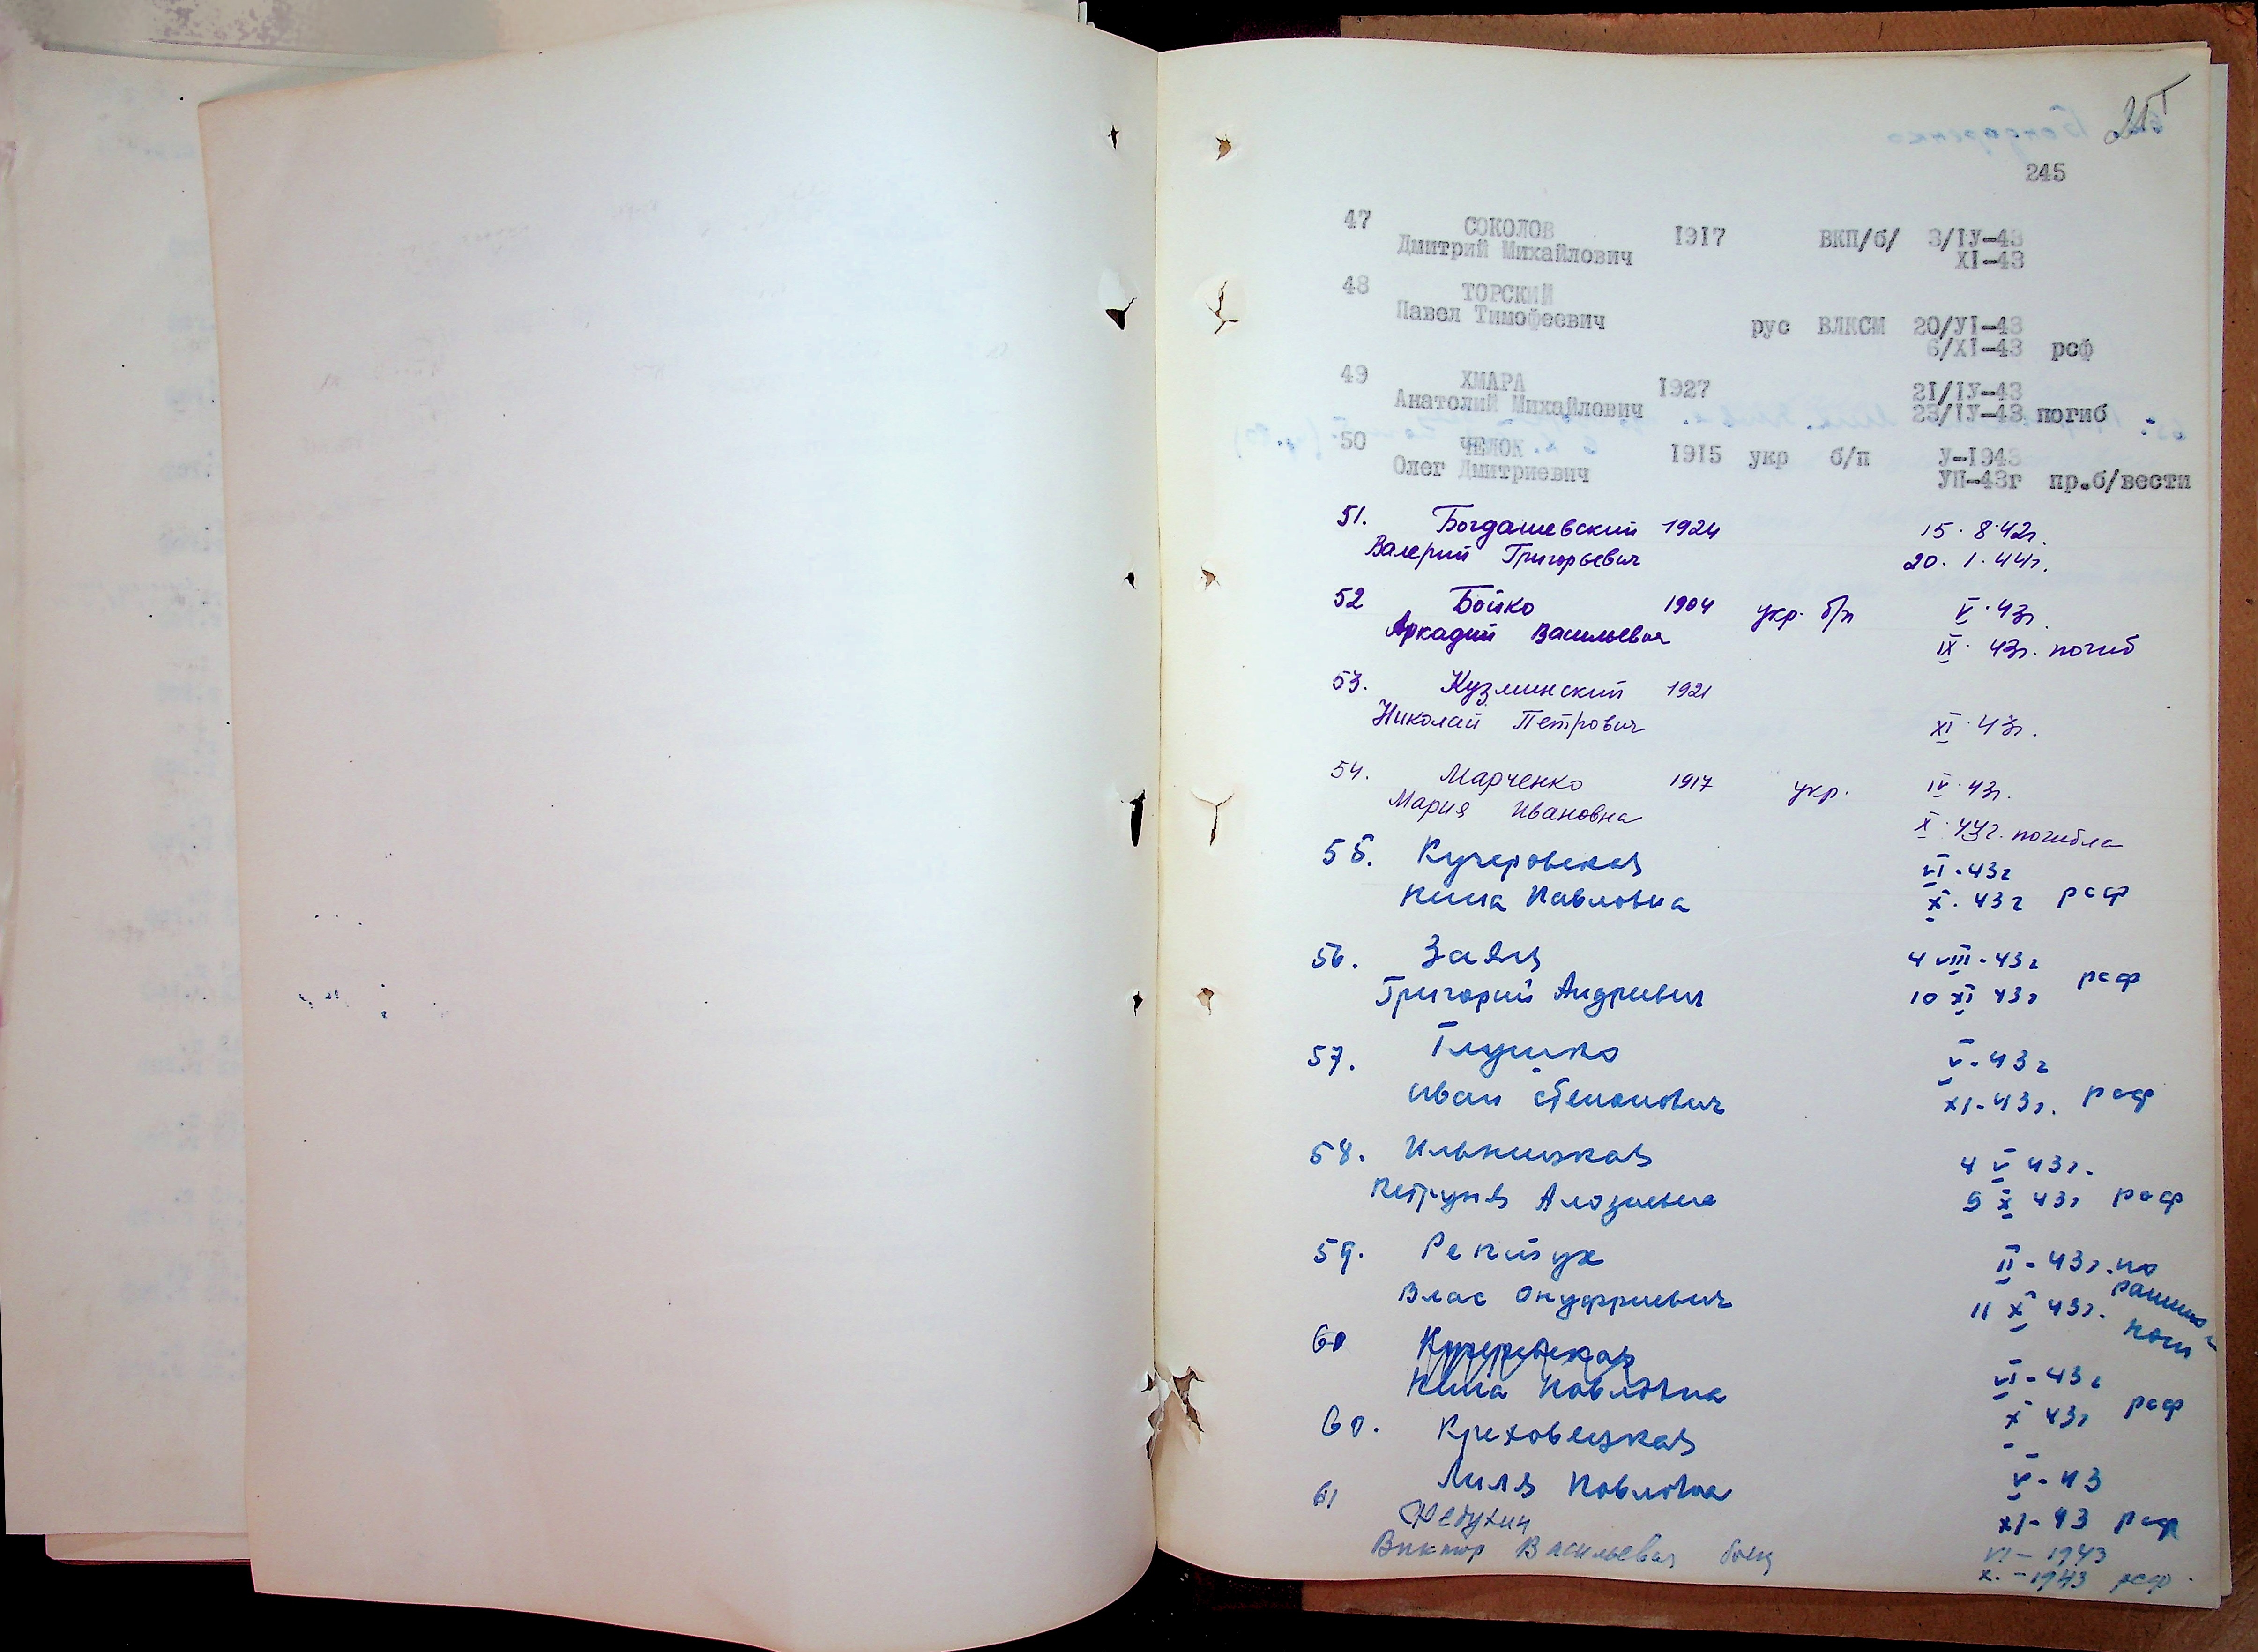 245
47 СОКОЛОВ 1917 ВКП/б/ 3/IУ-43
Дмитрий Михайлович XI-43
48 ТОРСКИЙ
Павел Тимофеевич рус ВЛКСМ 20/УI-43
6/XI-43 рсф
49 ХМАРА 1927 21/IУ-43
Анатолий Михайлович 23/IУ-43 погиб
50 ЧЕЛОК 1915 укр б/п У-1943
Олег Дмитриевич УП-43г пр.б/вести
51. Богдашевский 1924 15.8.42г.
Валерий Григорьевич 20.1.44г.
52 Бойко 1904 укр. б/п V.43г.
Аркадий Васильевич IX.43г. погиб
53. Кузминский 1921
Николай Петрович XI.43г.
54. Марченко 1917 укр. IV.43г.
Мария Ивановна X.44г. погибла
55. Кучеровская VI-43г
Нина Павловна X.43г рсф
56. Заяц 4 VIII-43г
Григорий Андреевич 10 XI 43г рсф
57. Глушко V-43г
Иван XI-43г. рсф
58. Ильницкая 4 V 43г.
9 X 43г рсф
59. II-43г. по
Влас Онуфриевич 11 X 43г.
60 Кучеровская
Нина Павловна VI-43г
X 43г рсф
60. Креховецкая
Лиля Павловна V-43
XI-43 рсф
61
Виктор Васильевич боец VI-1943
X.-1943 рсф